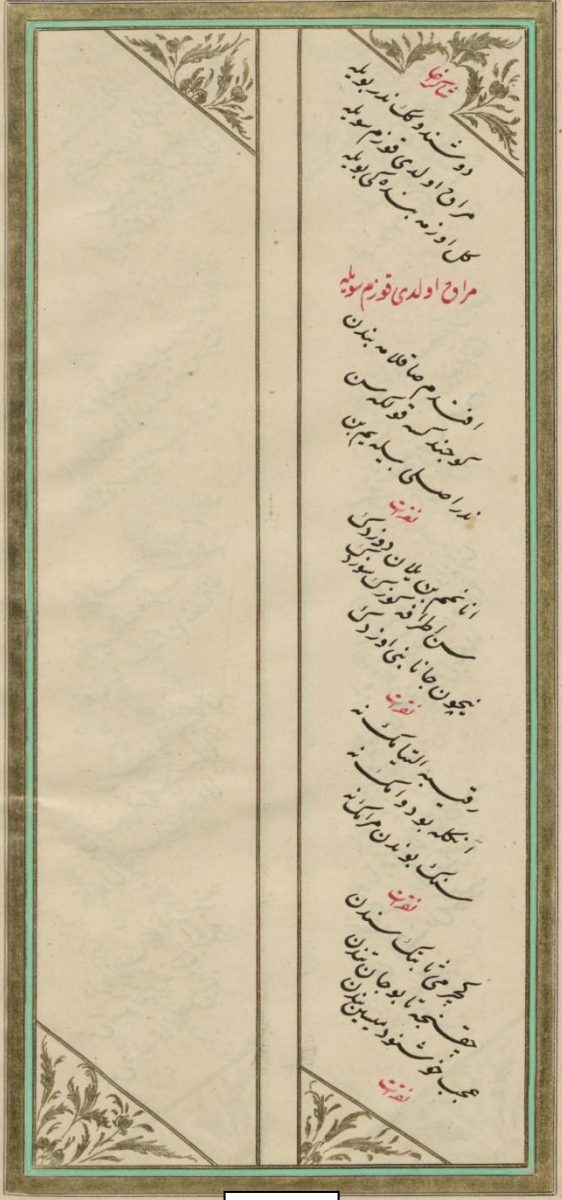 شاکر اغا
دوشندوکک ندر بویله
مراق اولدی قوزم سویله
کل اوزمه بنده کی بویله
مراق اولدی قوزم سویله
افندم صاقلامه بندن
کوجندک قولکه سن
ندر اصلی بیله یم بن
نقرات
انانمم بن یلان دوزدک
سن اطرافه کوزک سوزدک
نیچون جانا بنی اوزدک
نقرات
رقیبه التیامک نه
انکله بو دوامک نه
سنک بوندن مرامک نه
نقرات
کچرمی ثابتک سندن
چقنجه تا بو جان تندن
عجب خوشنودمیسین بندن
نقرات